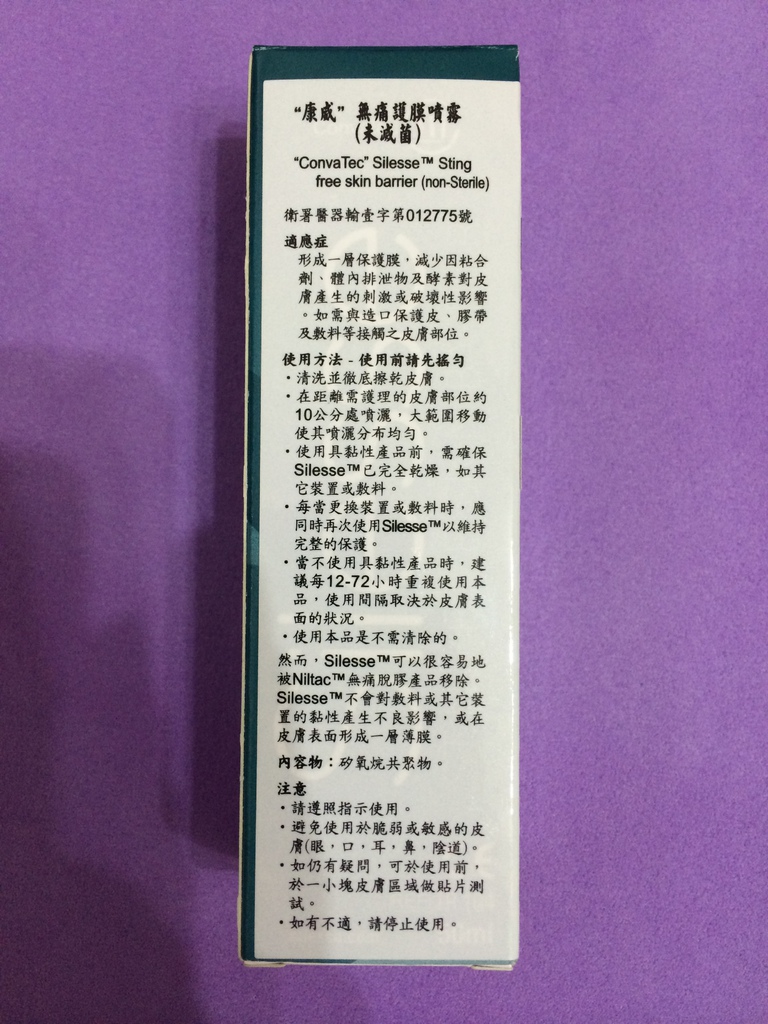 “康威” 無痛護膜噴霧
(未滅菌)
“ConvaTec” Silesse™ Sting
free skin barrier (non-Sterile)
衛署醫器輸壹字第012775號
適應症
形成一層保護膜，減少因粘合
劑、體內排泄物及酵素對皮
膚產生的刺激或破壞性影響
。如需與造口保護皮、膠帶
及敷料等接觸之皮膚部位。
使用方法 - 使用前請先搖勻
・清洗並徹底擦乾皮膚。
・在距離需護理的皮膚部位約
10公分處噴灑，大範圍移動
使其噴灑分布均勻。
・使用具黏性產品前，需確保
Silesse™已完全乾燥，如其
它裝置或敷料。
・每當更換裝置或敷料時，應
同時再次使用Silesse™以維持
完整的保護。
・當不使用具黏性產品時，建
議每12-72小時重複使用本
品，使用間隔取決於皮膚表
面的狀況。
・使用本品是不需清除的。
然而，Silesse™可以很容易地
被Niltac™無痛脫膠產品移除。
Silesse™不會對敷料或其它裝
置的黏性產生不良影響，或在
皮膚表面形成一層薄膜。
內容物：矽氧烷共聚物。
注意
・請遵照指示使用。
・避免使用於脆弱或敏感的皮
膚(眼，口，耳，鼻，陰道)。
・如仍有疑問，可於使用前，
於一小塊皮膚區域做貼片測
試。
・如有不適，請停止使用。